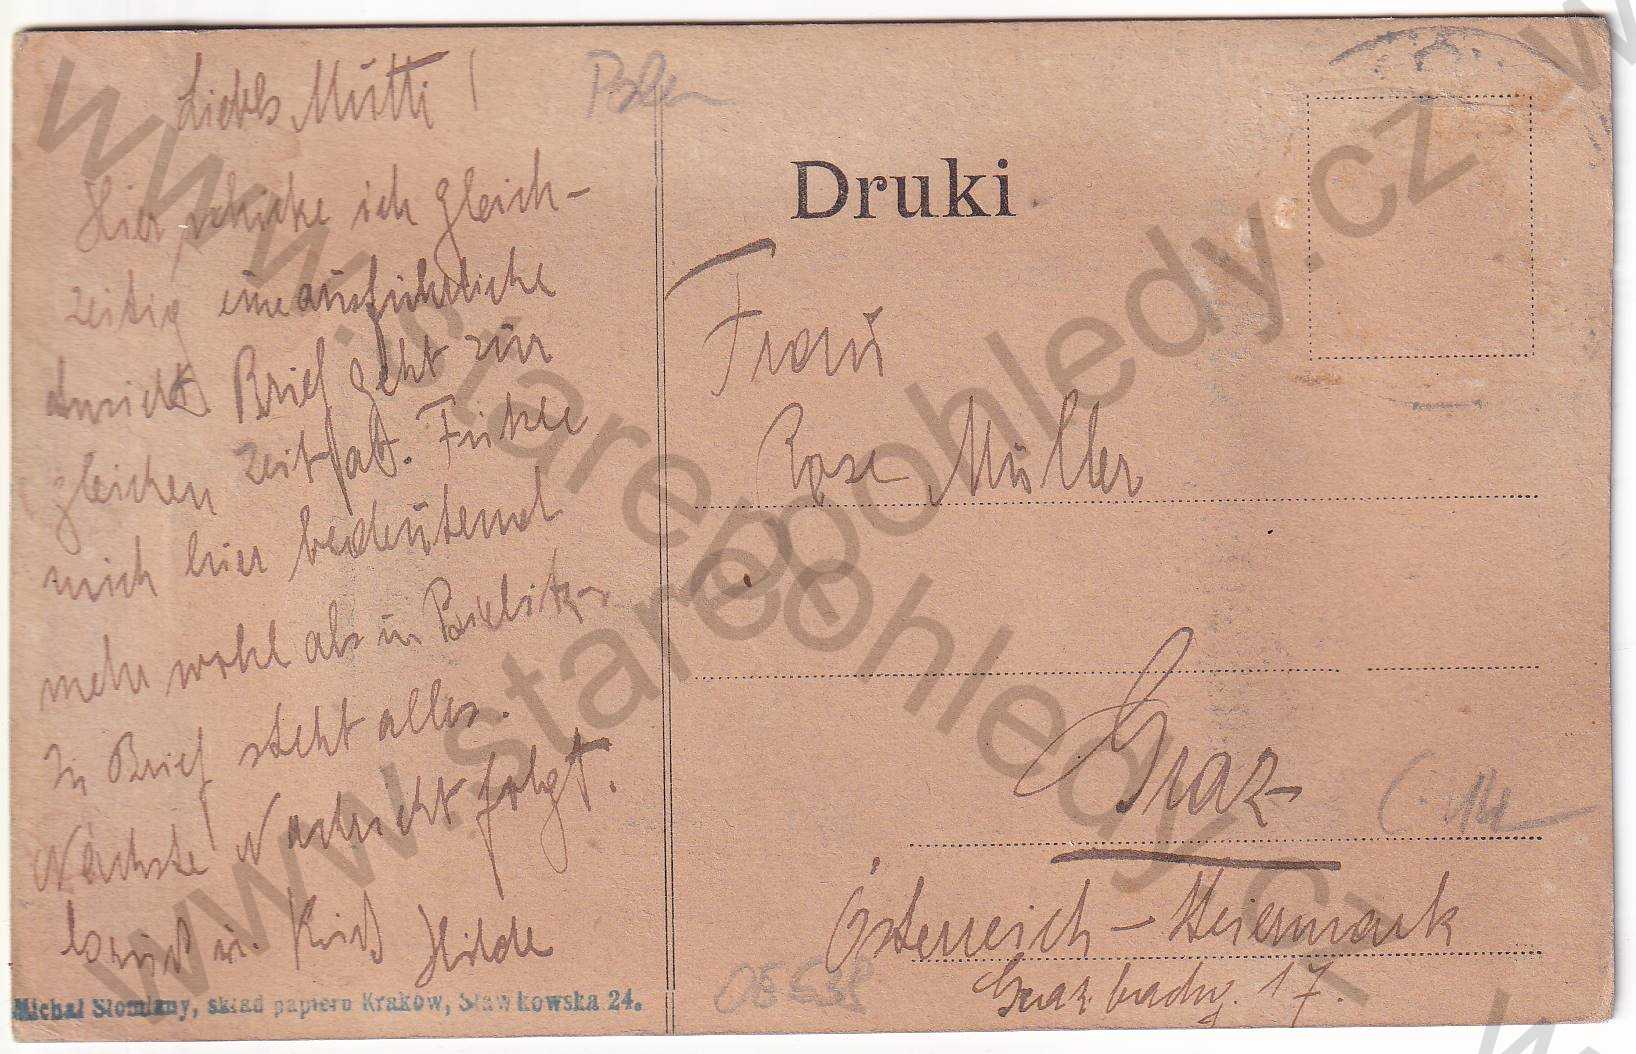 Liebes Mutti!
Hier schicke ich gleich-
zeitig eine ausführliche
Ansicht. Brief geht zur
gleichen Zeit ab. Fühle
mich hier bedeutend
mehr wohl als in Bielitz.
In Brief steht alles.
Nächste Nachricht folgt.
Gruß u. Kuß Hilde
Michał Słomiany, skład papieru Kraków, Sławkowska 24.
Polen
Druki
Frau
Rosa Müller
Graz
Österreich - Steiermark
17.
www.starepohledy.cz
www.starepohledy.cz